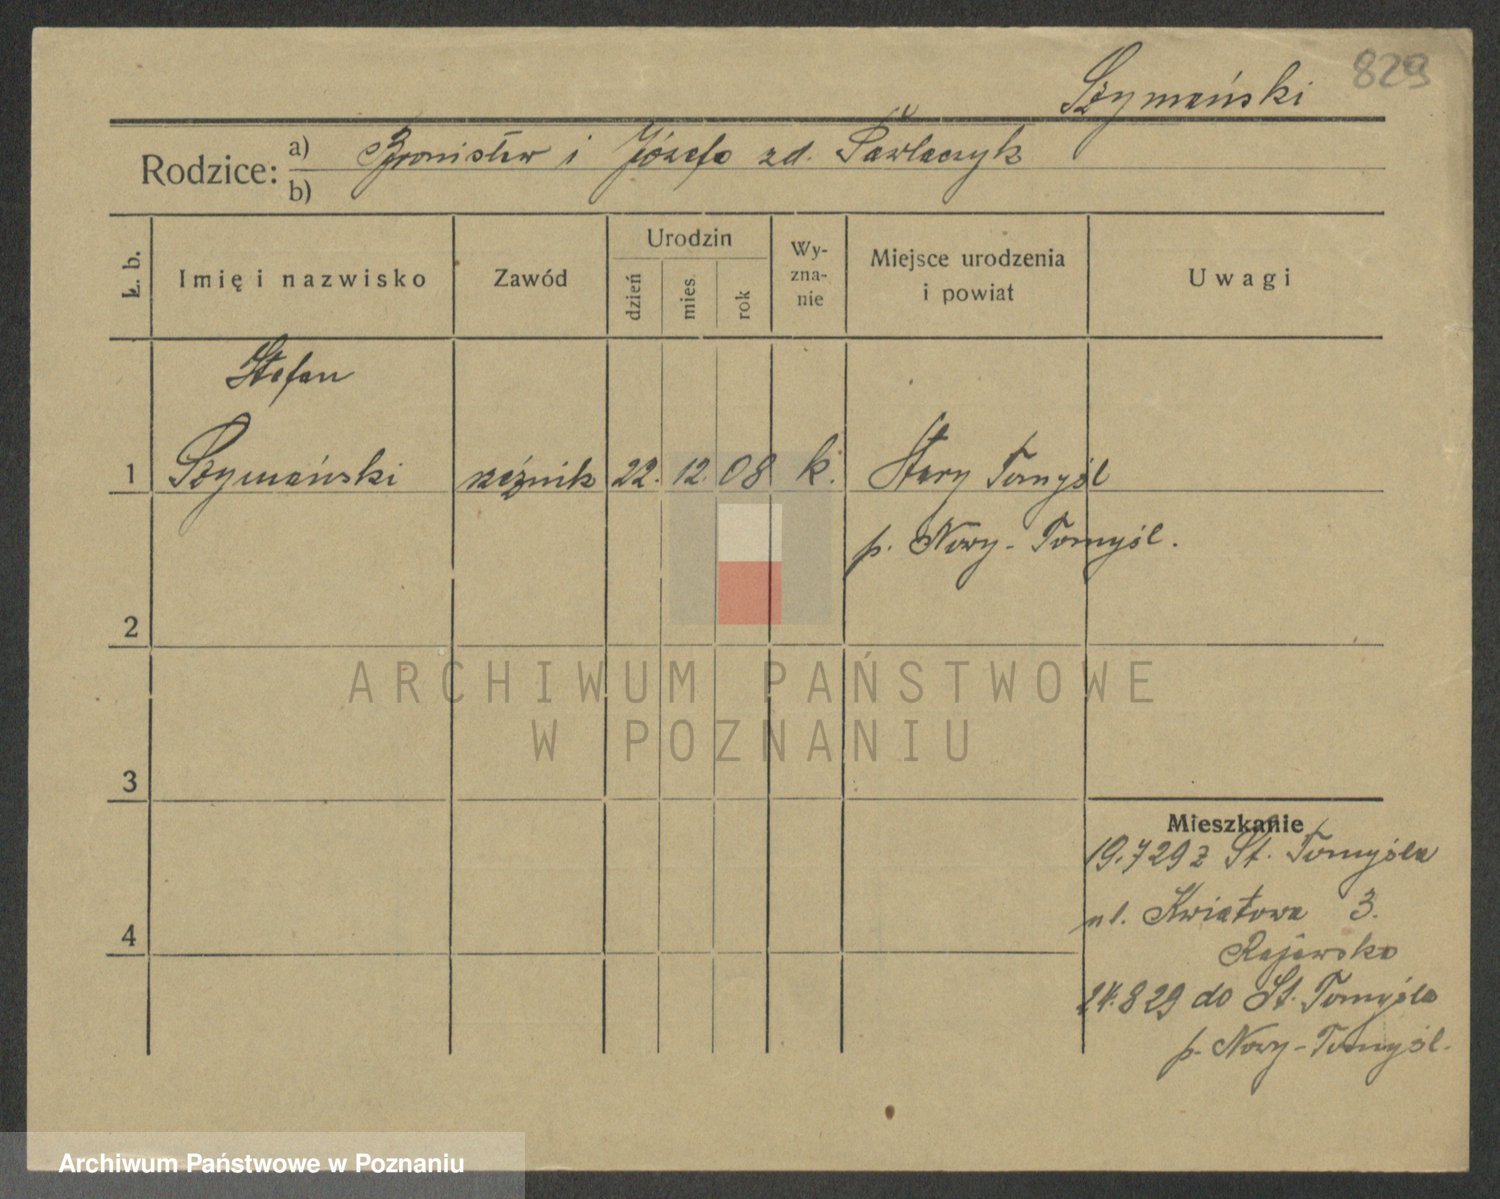 829
Szymański
Rodzice: a) Bronisław i Józefa zd. Pawlaczyk
b)
Ł. b.
Imię i nazwisko
Zawód
Urodzin
dzień
mies.
rok
Wy-
zna-
nie
Miejsce urodzenia
i powiat
Uwagi
Stefan
1 Szymański rzeźnik 22. 12. 08 k. Stary Tomyśl
p. Nowy-Tomyśl.
2
3
4
Mieszkanie
19.7 29 z St. Tomyśla
ul. Kwiatowa 3.
24.8 29 do St. Tomyśla
p. Nowy-Tomyśl.
ARCHIWUM PAŃSTWOWE
W POZNANIU
Archiwum Państwowe w Poznaniu